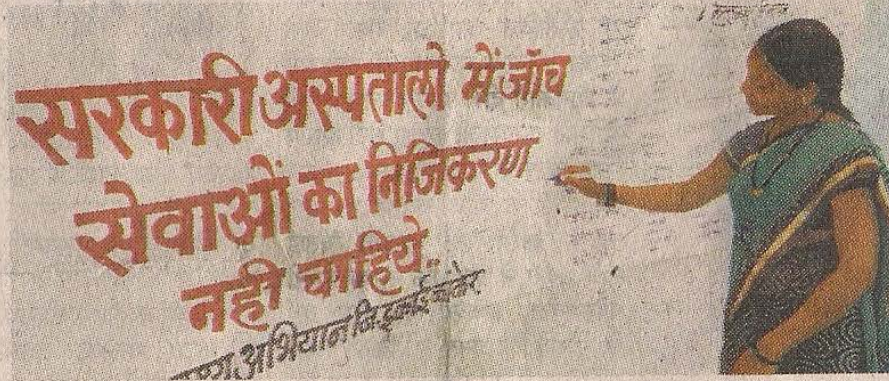 सरकारी अस्पतालो में जाँच
सेवाओं का निजिकरण
नही चाहिये..
अभियान जि.इकाई